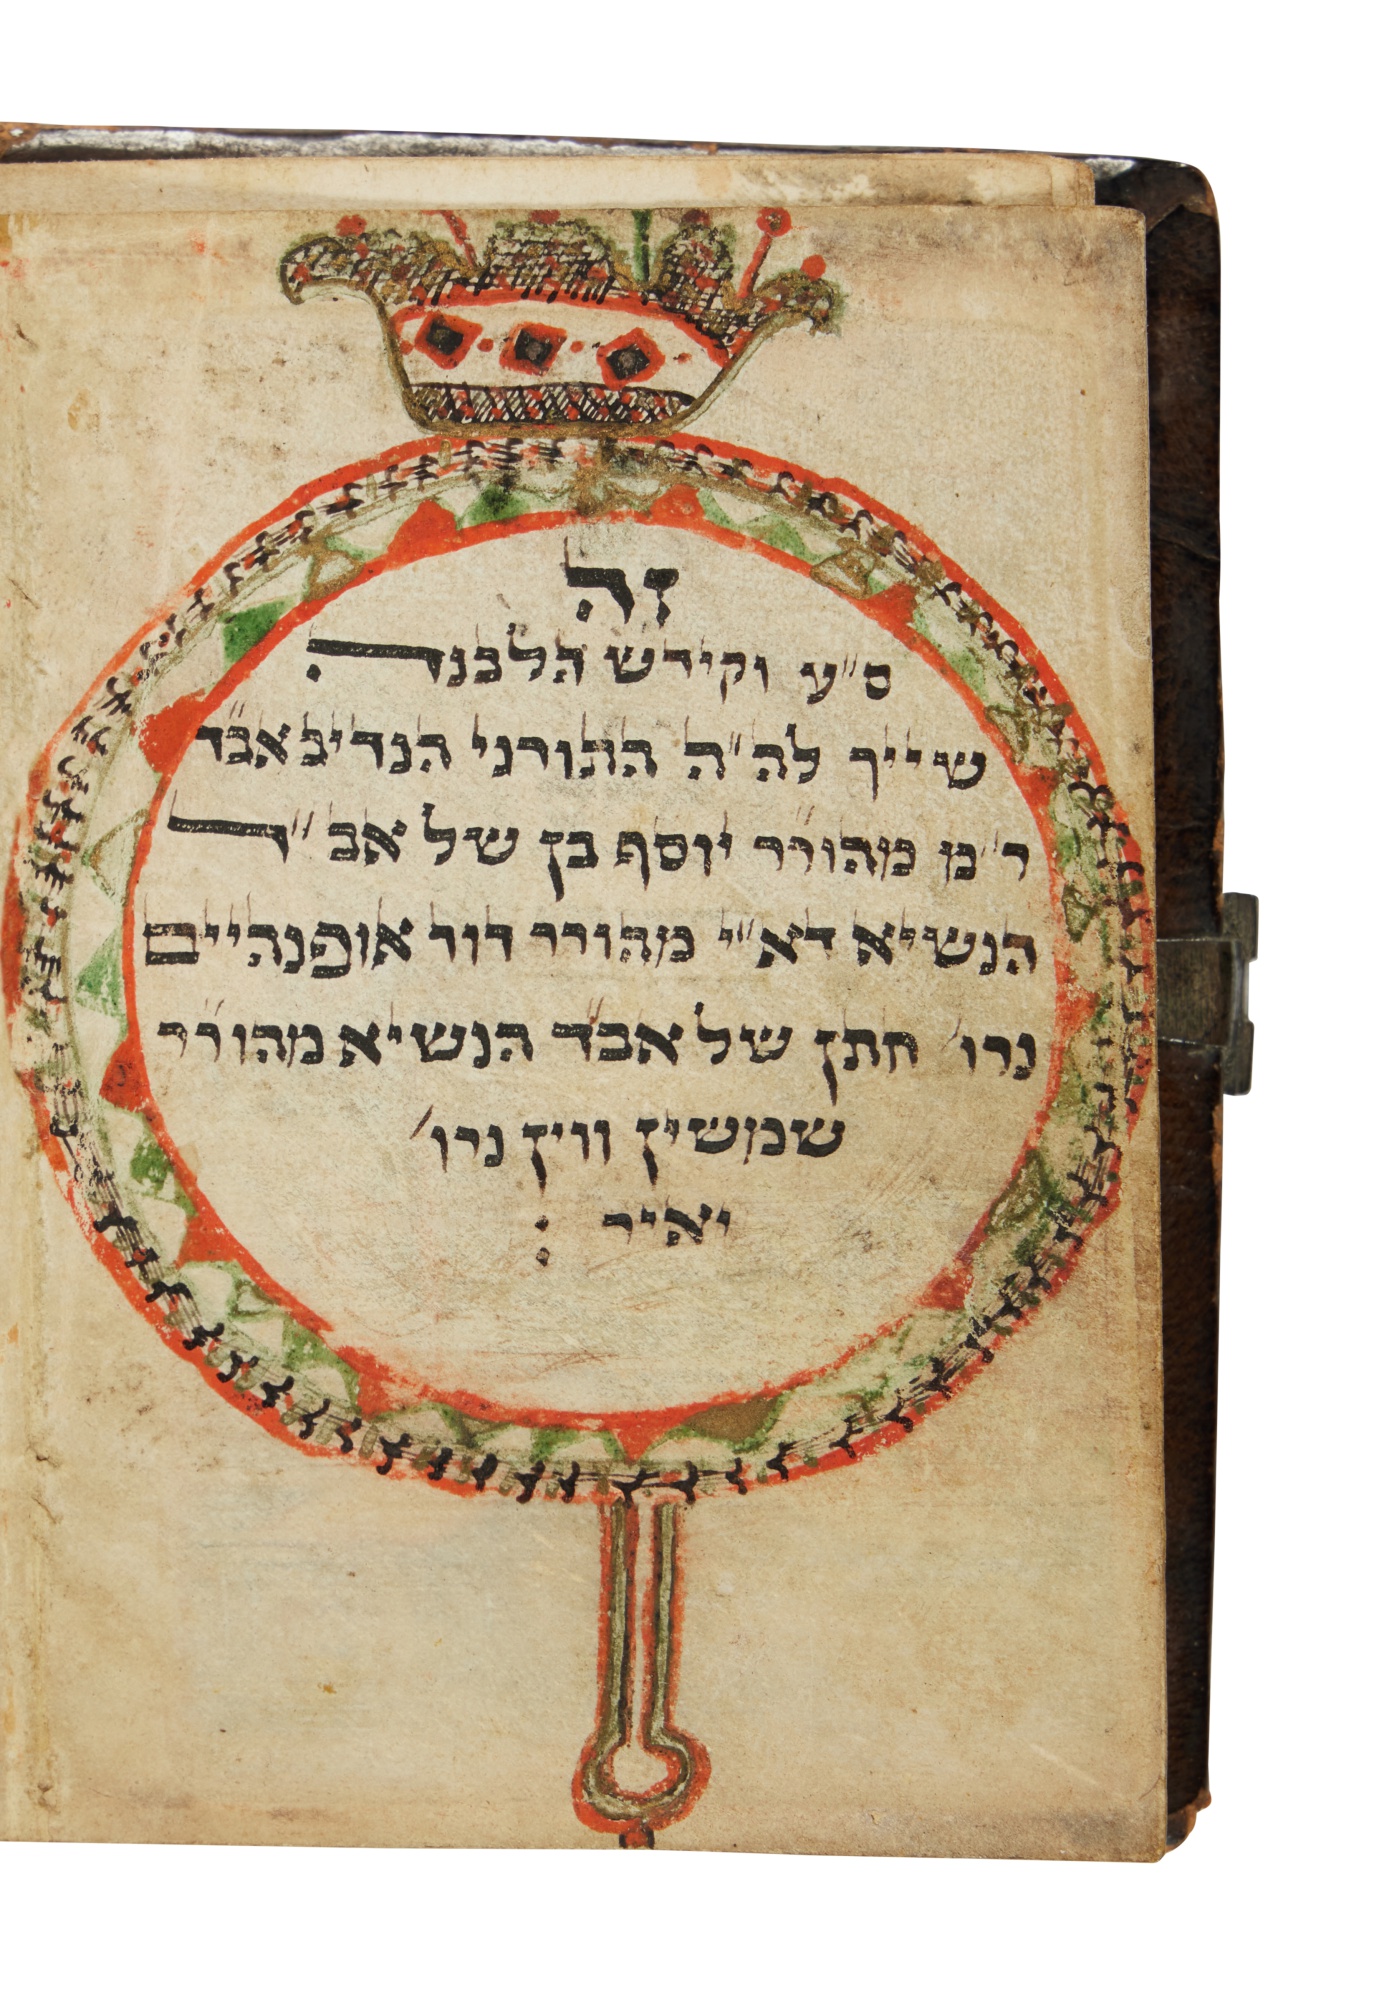 זה
ס"ע וקידש הלבנה
שייך לה"ה התורני הנדיב אב"ד
ר"מ מהור"ר יוסף בן של אב"ד
הנשיא דא"י מהורר דוד אופנהיים
נרו' חתן של אב"ד הנשיא מהור"ר
שמשין ווין נרו'
יאיר :